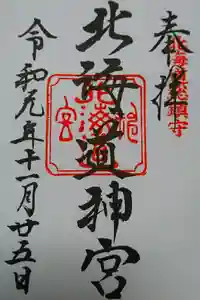 奉拝
北海道総鎮守
北海道神宮
令和元年十一月廿五日